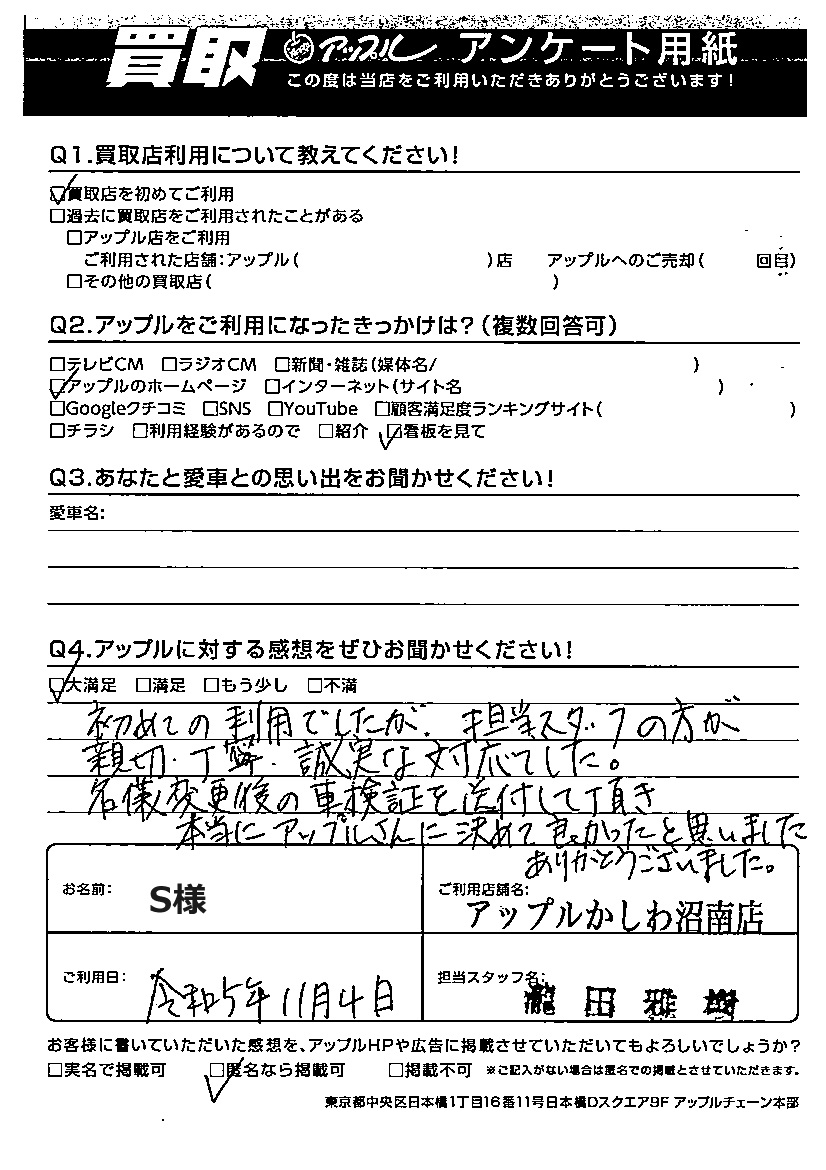 買取 アップル アンケート用紙
この度は当店をご利用いただきありがとうございます!
Q1.買取店利用について教えてください!
☑買取店を初めてご利用
□過去に買取店をご利用されたことがある
□アップル店をご利用
ご利用された店舗:アップル( )店 アップルへのご売却( 回目)
□その他の買取店( )
Q2.アップルをご利用になったきっかけは?(複数回答可)
□テレビCM □ラジオCM □新聞・雑誌(媒体名/ )
☑アップルのホームページ □インターネット(サイト名 )
□Googleクチコミ □SNS □YouTube □顧客満足度ランキングサイト( )
□チラシ □利用経験があるので □紹介 ☑看板を見て
Q3.あなたと愛車との思い出をお聞かせください!
愛車名:
Q4.アップルに対する感想をぜひお聞かせください!
☑大満足 □満足 □もう少し □不満
初めての利用でしたが、担当スタッフの方が
親切・丁寧・誠実な対応でした。
名儀変更後の車検証を送付して頂き
本当にアップルさんに決めて良かったと思いました
ありがとうございました。
お名前: S様
ご利用店舗名: アップルかしわ沼南店
ご利用日: 令和5年11月4日
担当スタッフ名: 瀧田雅樹
お客様に書いていただいた感想を、アップルHPや広告に掲載させていただいてもよろしいでしょうか?
□実名で掲載可 ☑匿名なら掲載可 □掲載不可 ※ご記入がない場合は匿名での掲載とさせていただきます。
東京都中央区日本橋1丁目16番11号日本橋Dスクエア9F アップルチェーン本部